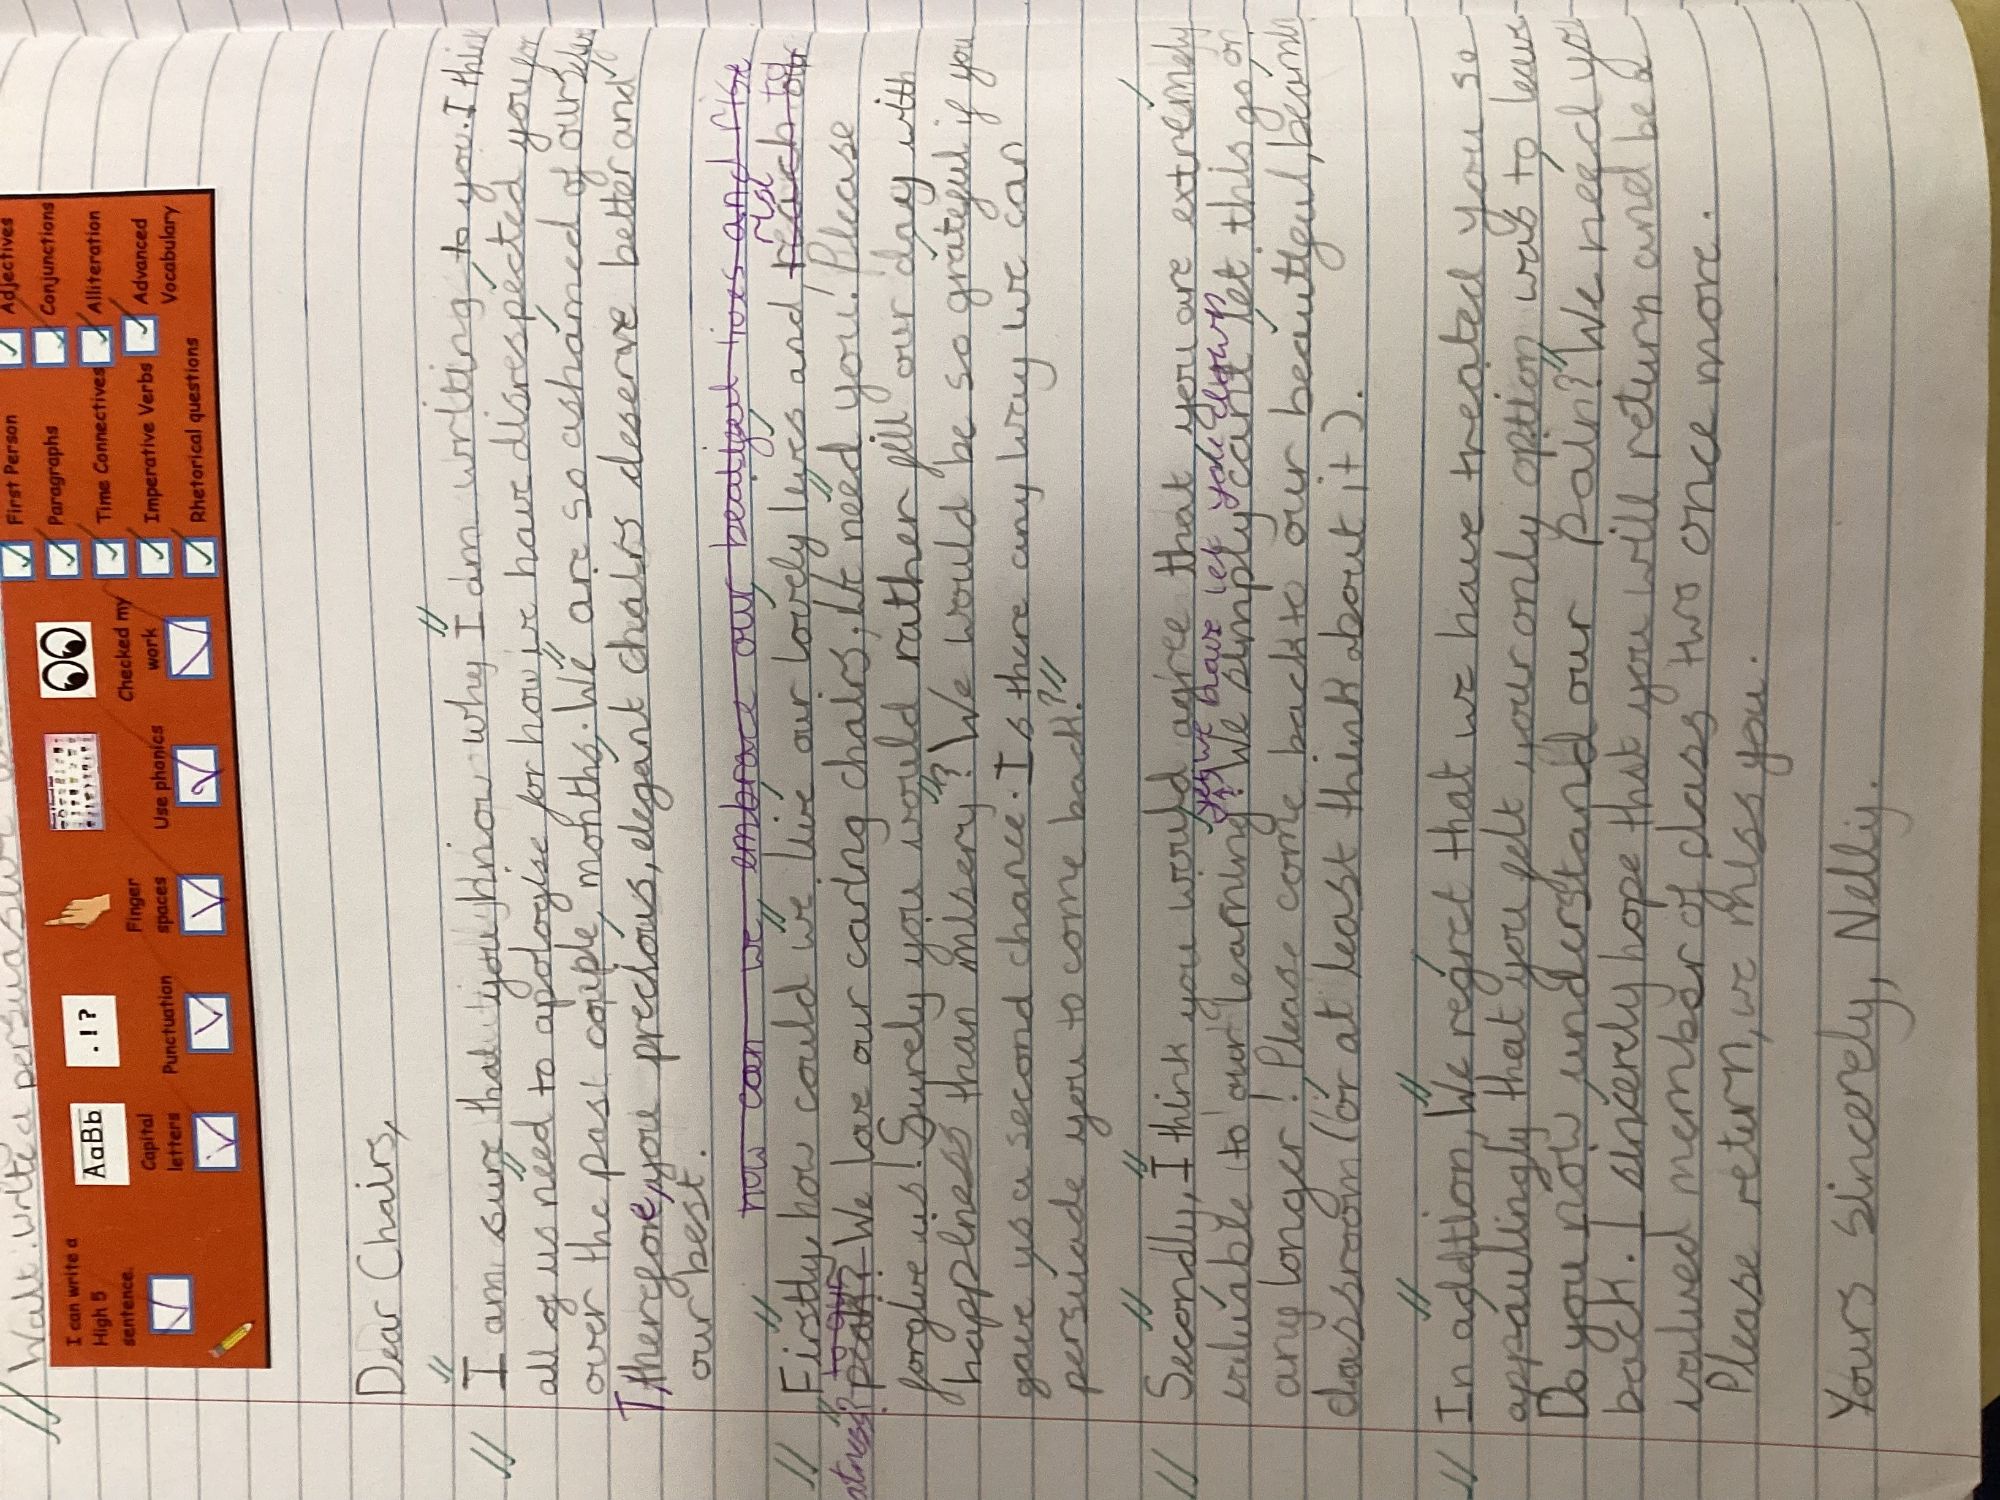 Walt: write a persuasive
I can write a High 5 sentence.
AaBb
Capital letters
. ! ?
Punctuation
Finger spaces
Use phonics
Checked my work
First Person
Paragraphs
Time Connectives
Imperative Verbs
Rhetorical questions
Adjectives
Conjunctions
Alliteration
Advanced Vocabulary
Dear Chairs,
I am sure that you know why I am writing to you. I think
all of us need to apologise for how we have disrespected you
over the past couple months. We are so ashamed of ourselves
Therefore, you precious, elegant chairs deserve better and
our best.
how can we embrace our beatiful lives and rise
Firstly, how could we live our lovely lives and reach our
peak? We love our caring chairs, We need you! Please
forgive us! Surely you would rather fill our day with
happiness than misery? We would be so grateful if you
gave us a second chance. Is there any way we can
persuade you to come back?
Secondly, I think you would agree that you are extremely
valuable to our learning? We simply cant let this go on
yes we have let you down
any longer! Please come back to our beautful,
classroom (or at least think about it).
In addtion, We regret that we have treated you so
appaulingly that you felt your only option was to leave
Do you now understand our pain? We need you
back. I sincerely hope that you will return and be a
valued member of class two once more.
Please return, we miss you.
Yours sincerely, Nelly.